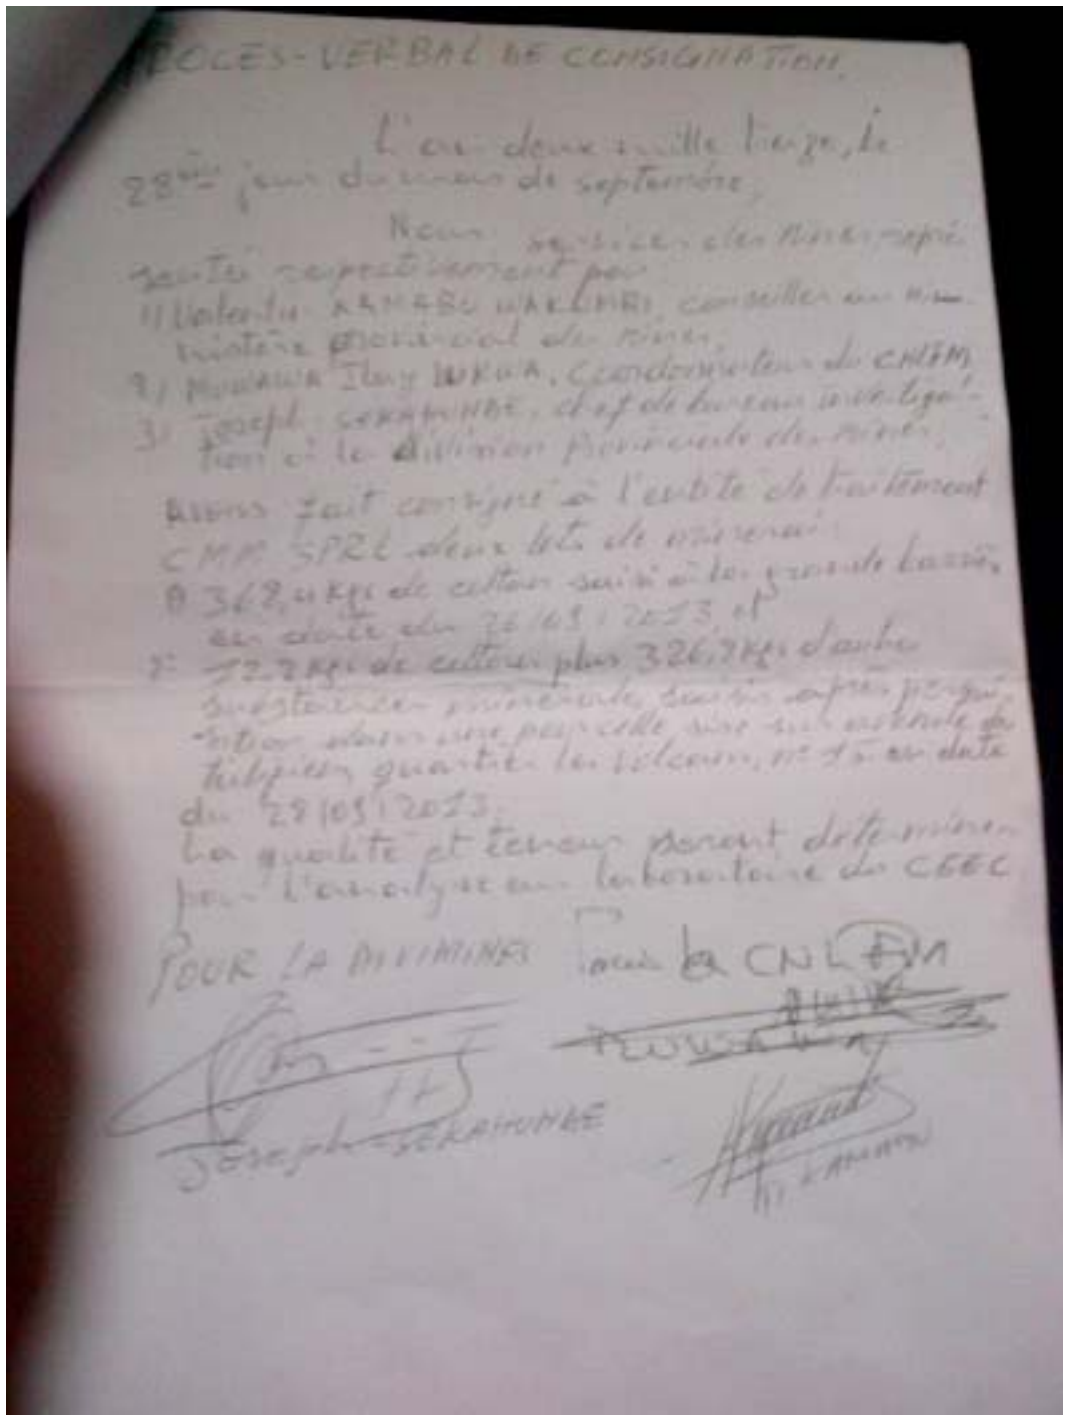 PROCES-VERBAL DE CONSIGNATION.
L'an deux mille treize, le
28ème jour du mois de septembre,
Nous services des Mines repré
sentés respectivement par
1) Valentin KAMABU, conseiller au Mi-
nistère provincial des Mines,
2) MUWAWA, Coordonnateur du CNLFM
3) Joseph SEKAHUNDE, chef de bureau investiga-
tion à la division provinciale des mines,
Avons fait consigné à l'entité de traitement
CMM SPRL deux lots de minerai:
368,4 kgs de coltan saisi à la grande barrière
en date du 26/09/2013, et
12.2 kgs de coltan plus 326,2 kgs d'autre
substances minérale, saisis après perqui-
sition dans une parcelle sise sur avenue de
tulipiers, quartier les volcans, n° 15 en date
du 28/09/2013.
La qualité et teneur seront déterminer
par l'analyse au laboratoire du CEEC
POUR LA DIVIMINES Pour la CNLFM
MUWAWA
Joseph SEKAHUNDE